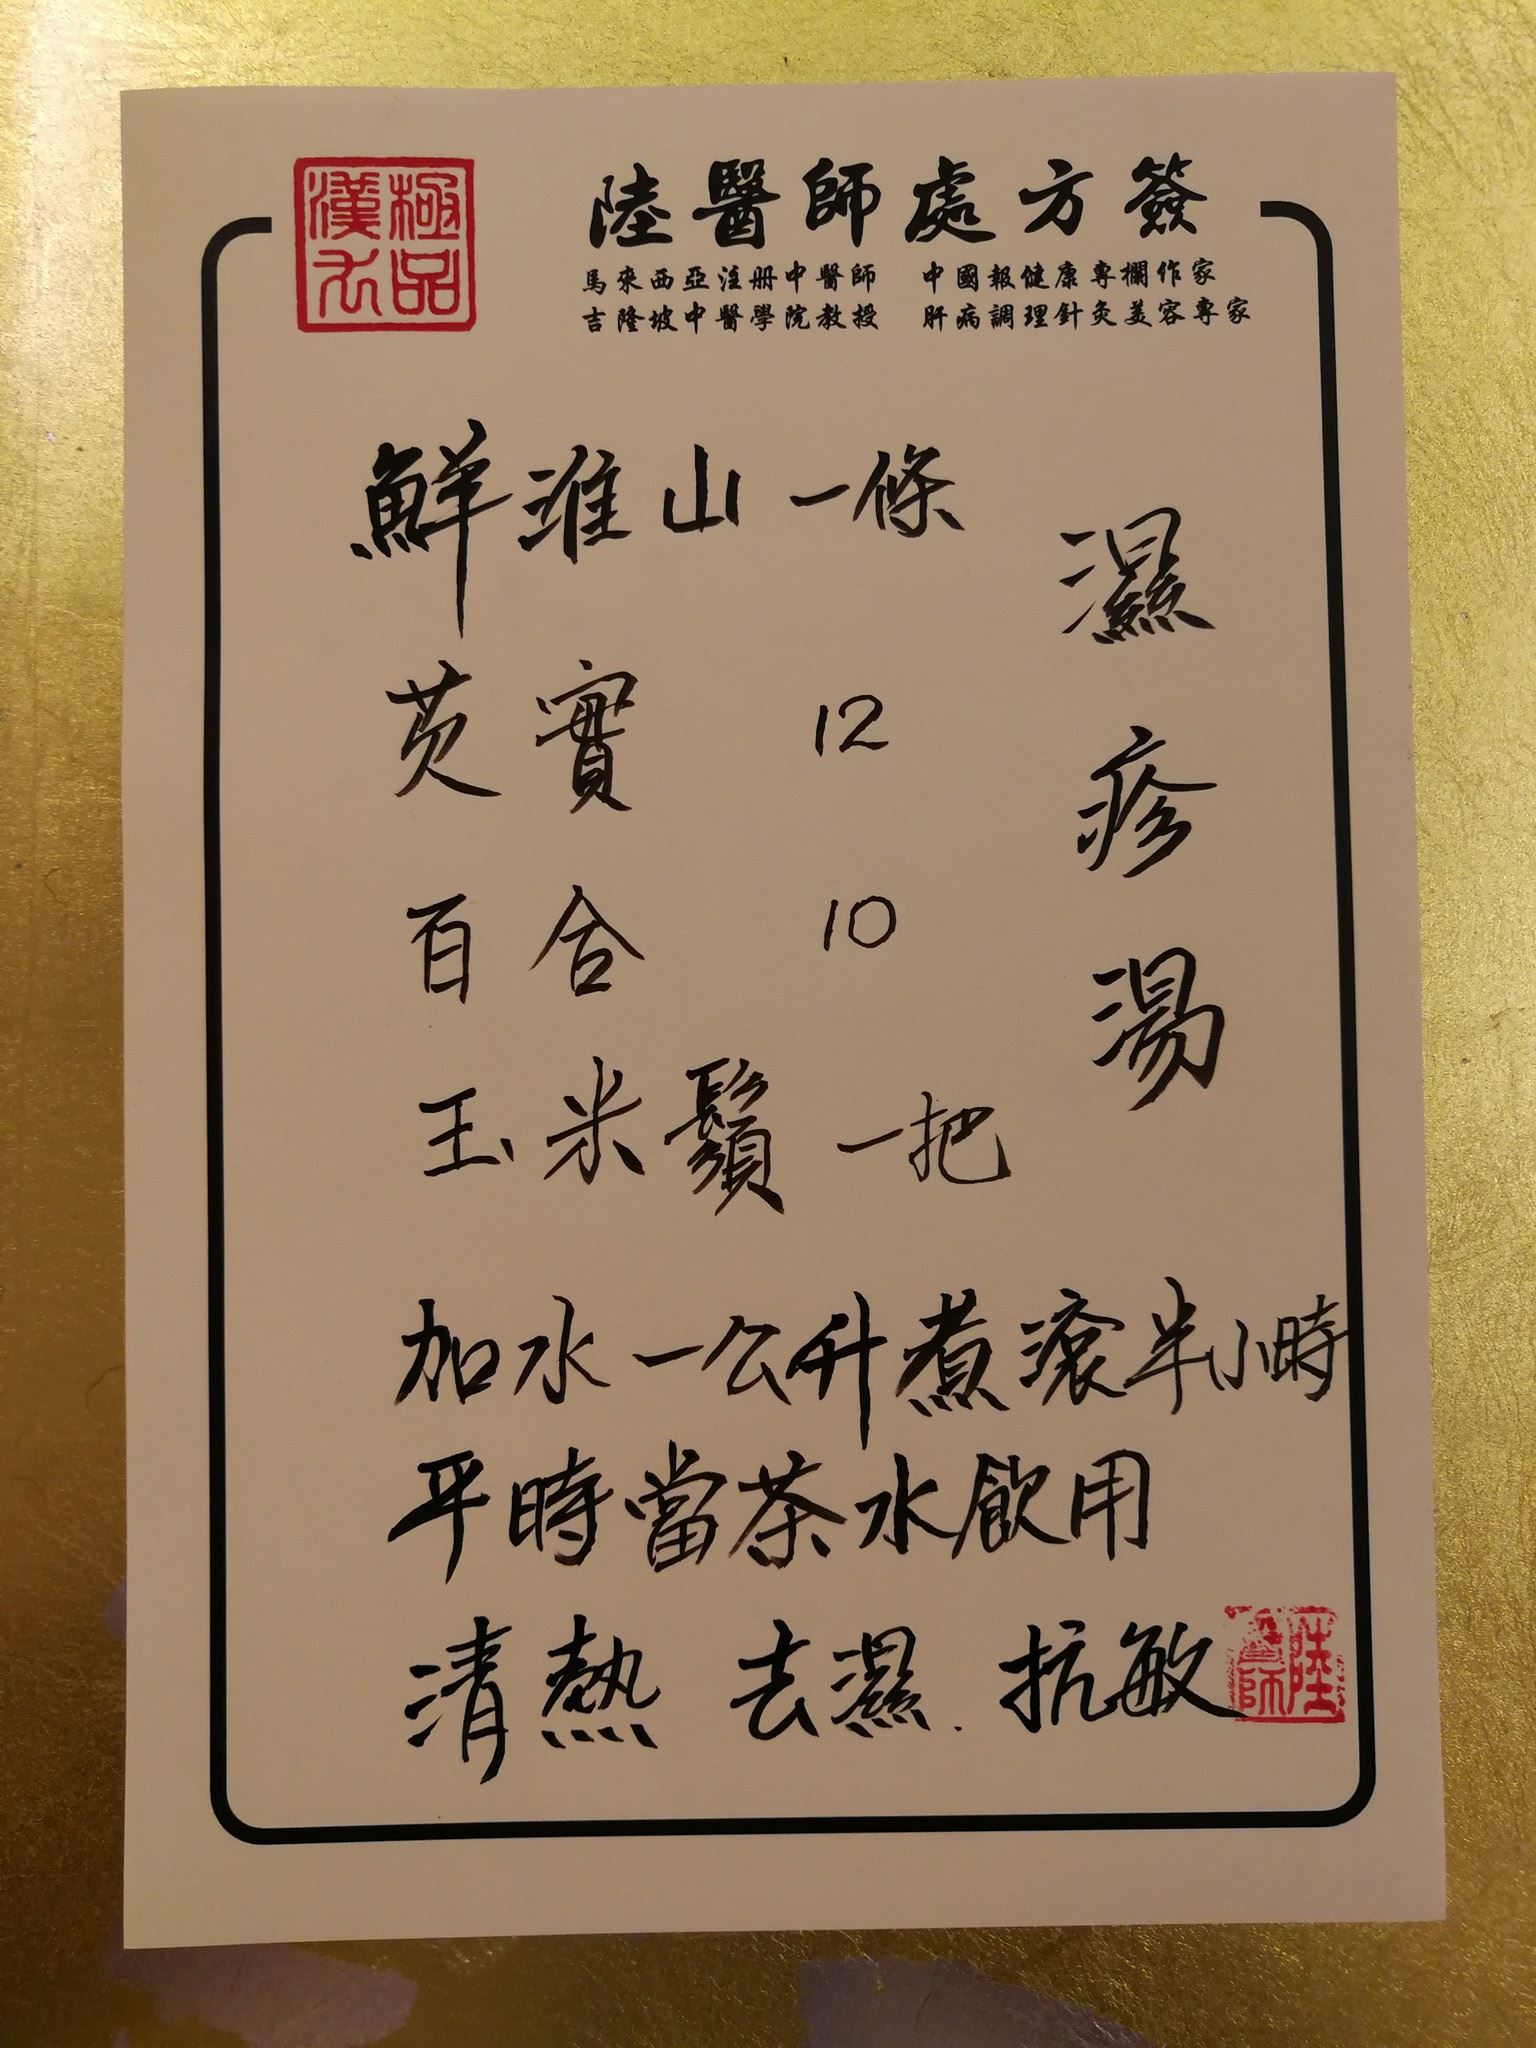 極品
漢方
陸醫師處方簽
馬來西亞注册中醫師 中國報健康專欄作家
吉隆坡中醫學院教授 肝病調理針灸美容專家
濕疹湯
鮮淮山 一條
芡實 12
百合 10
玉米鬚 一把
加水一公升煮滾半小時
平時當茶水飲用
清熱 去濕. 抗敏
陸醫師